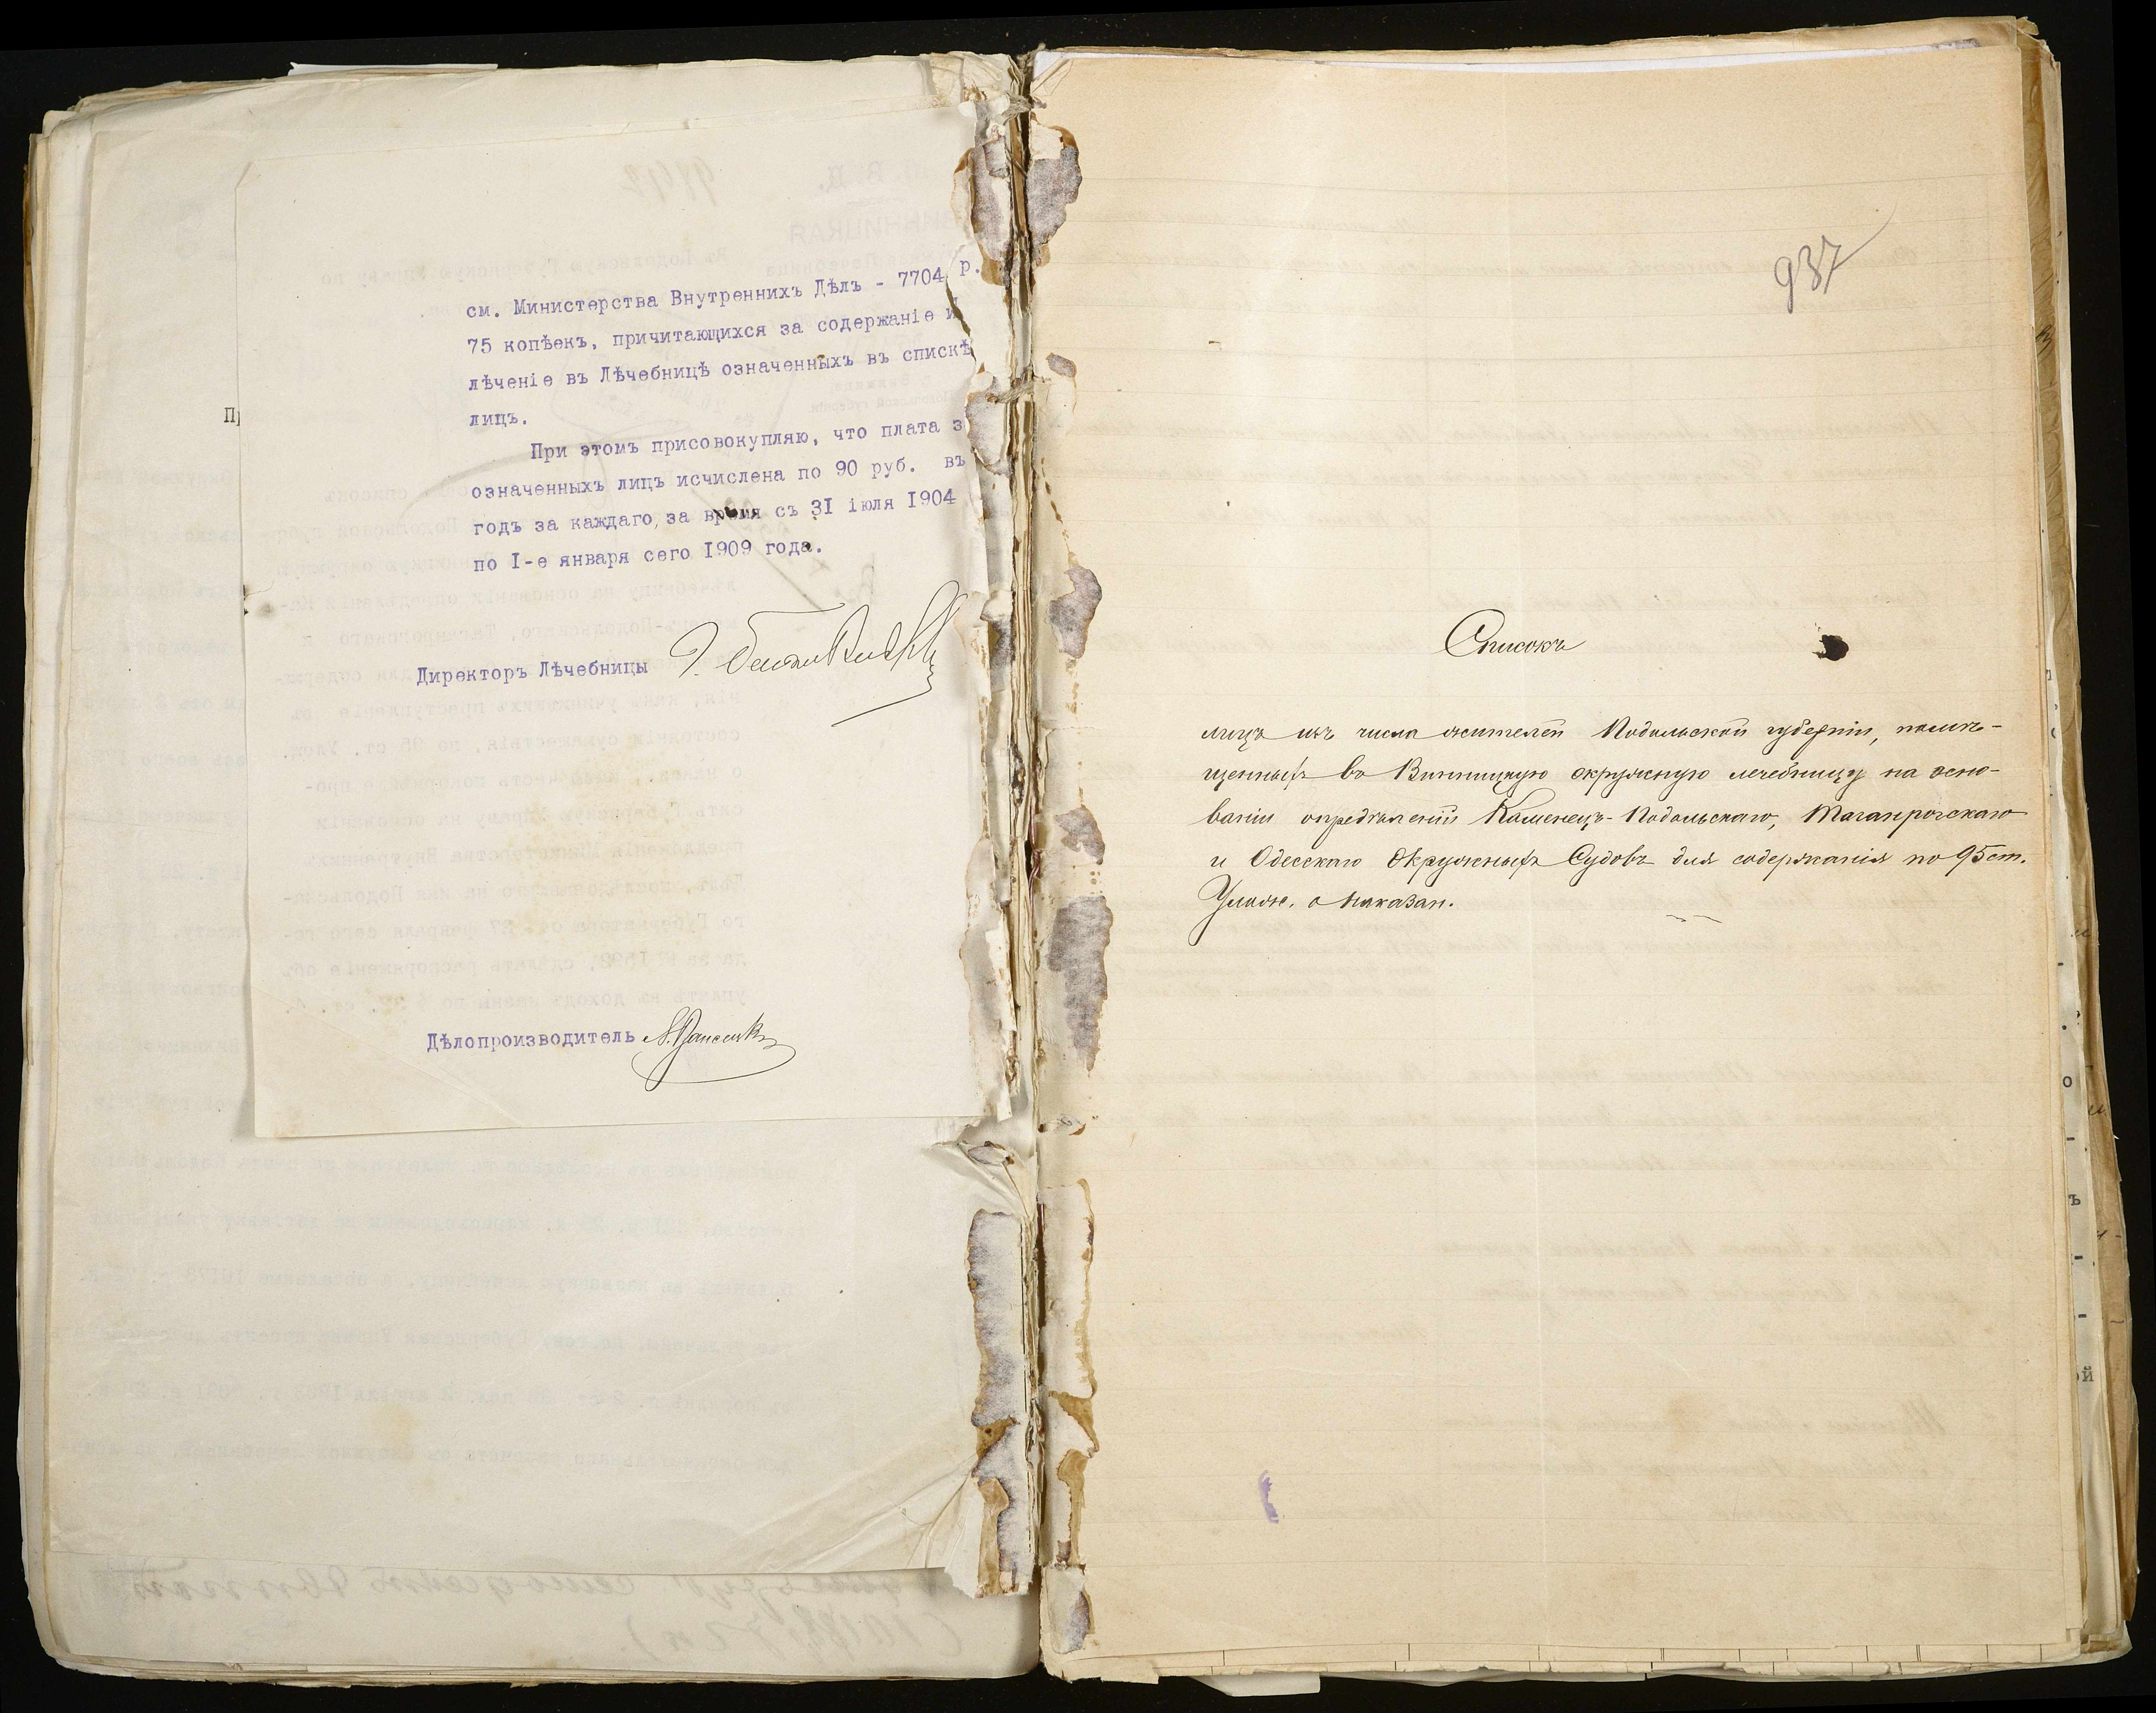 П
см. Министерства Внутреннихъ Дѣлъ - 7704 р.
75 копѣекъ, причитающихся за содержаніе и
лѣченіе въ Лѣчебницѣ означенныхъ въ спискѣ
лицъ.
При этомъ присовокупляю, что плата з
означенныхъ лицъ исчислена по 90 руб. въ
годъ за каждаго, за время съ 3I іюля I904
по I-е января сего I909 года.
Директоръ Лѣчебницы
Дѣлопроизводитель
937
Списокъ
лицъ изъ числа жителей Подольской губерніи, помѣ-
щенныхъ въ Винницкую окружную лечебницу на осно-
ваніи опредѣленій Каменецъ-Подольскаго, Таганрогскаго
и Одесскаго Окружныхъ Судовъ для содержанія по 95 ст.
Улож. о наказан.